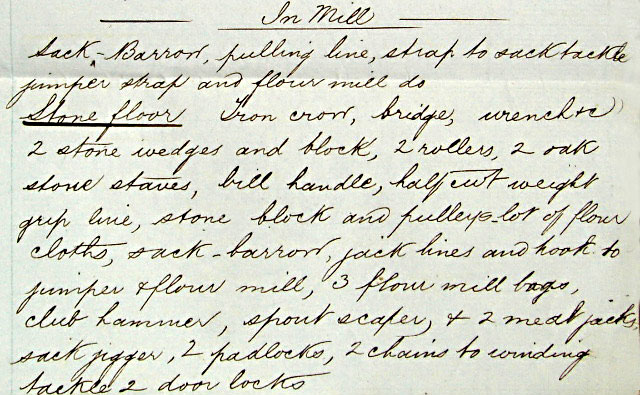 In Mill
Sack-Barrow, pulling line, strap to sack tackle
jumper strap and flour mill do
Stone floor Iron crow, bridge, wrench &c
2 stone wedges and block, 2 rollers, 2 oak
stone staves, bill handle, half cwt weight
grip line, stone block and pulleys-lot of flour
cloths, sack-barrow, jack lines and hook to
jumper & flour mill, 3 flour mill bags,
club hammer, spout scaper, & 2 meal jacks,
sack jigger, 2 padlocks, 2 chains to winding
tackle 2 door locks